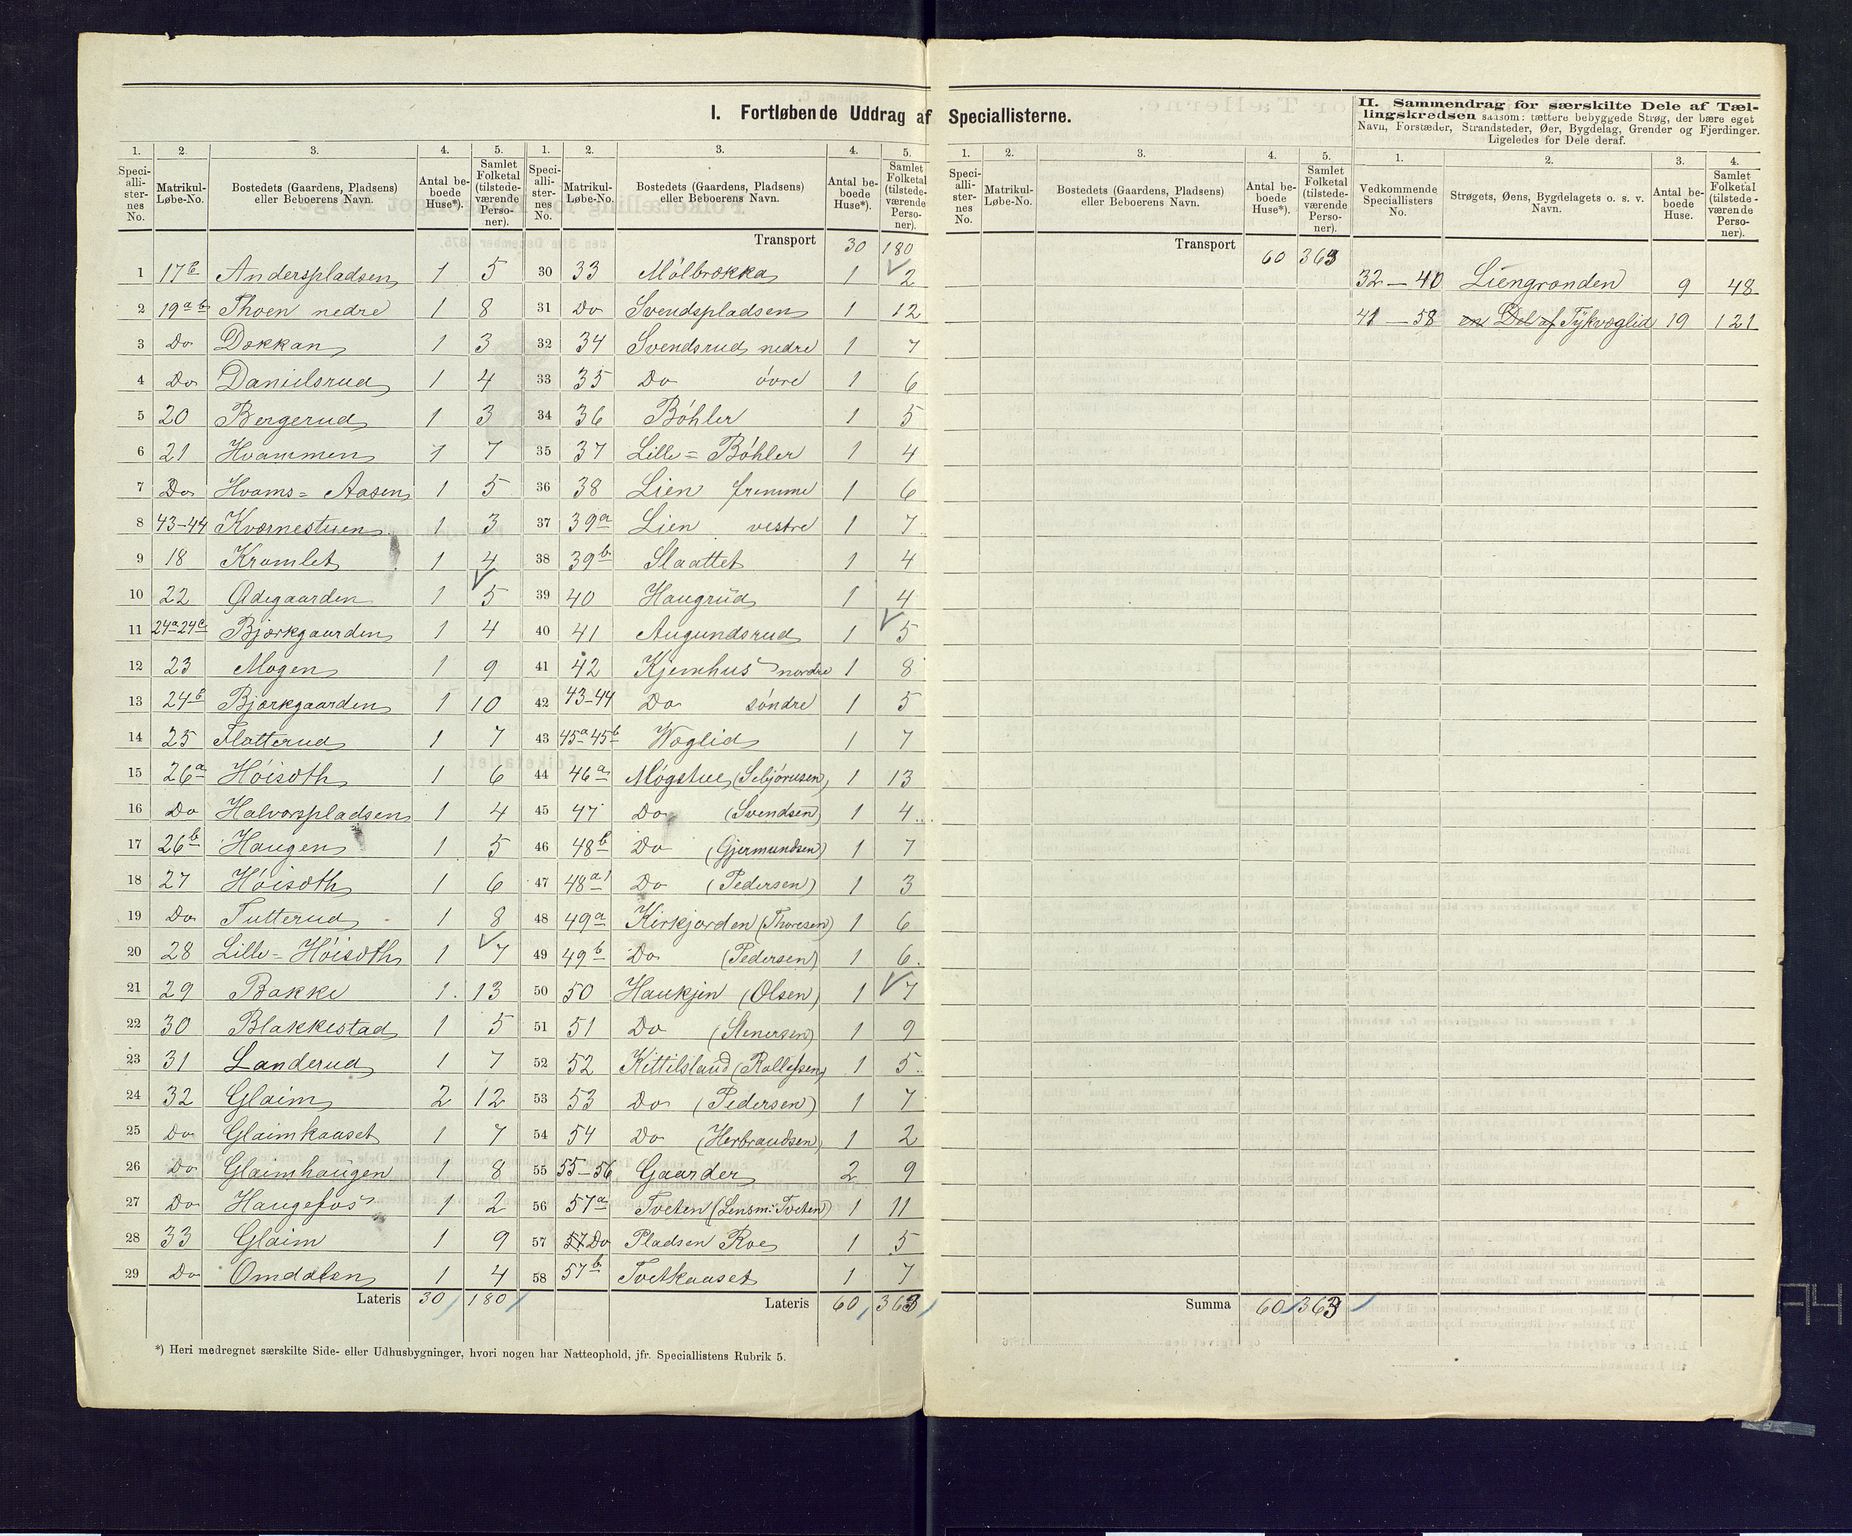 I. Fortløbende Uddrag af Speciallisterne.
1. 2. 3. 4. 5.
Speciallisternes No. Matrikul-Løbe-No. Bostedets (Gaardens, Pladsens) eller Beboerens Navn. Antal beboede Huse*). Samlet Folketal (tilstedeværende Personer).
1 17b Anderspladsen 1 5
2 19a b Thoen nedre 1 8
3 Do Dokkan 1 3
4 Do Danielsrud 1 4
5 20 Bergerud 1 3
6 21 Hvammen 1 7
7 Do Hvams=Aasen 1 5
8 43-44 Kværnestuen 1 3
9 18 Kromlet 1 4
10 22 Ødegaarden 1 5
11 24a 24c Bjørkgaarden 1 4
12 23 Mogen 1 9
13 24b Bjørkgaarden 1 10
14 25 Flatterud 1 7
15 26a Høisæth 1 6
16 Do Halvorspladsen 1 4
17 26b Haugen 1 5
18 27 Høisæth 1 6
19 Do Tutterud 1 8
20 28 Lille=Høisæth 1 7
21 29 Bakke 1 13
22 30 Blakkestad 1 5
23 31 Landerud 1 7
24 32 Glaim 2 12
25 Do Glaimkaaset 1 7
26 Do Glaimhaugen 1 8
27 Do Haugefos 1 2
28 33 Glaim 1 9
29 Do Omdalen 1 4
Lateris 30 180
*) Heri medregnet særskilte Side- eller Udhusbygninger, hvori nogen har Natteophold, jfr. Speciallistens Rubrik 5.
1. 2. 3. 4. 5.
Speciallisternes No. Matrikul-Løbe-No. Bostedets (Gaardens, Pladsens) eller Beboerens Navn. Antal beboede Huse*). Samlet Folketal (tilstedeværende Personer).
Transport 30 180
30 33 Mølbrokka 1 2
31 Do Svendspladsen 1 12
32 34 Svendsrud nedre 1 7
33 35 Do øvre 1 6
34 36 Bøhler 1 5
35 37 Lille=Bøhler 1 4
36 38 Lien fremme 1 6
37 39a Lien vestre 1 7
38 39b Slaattet 1 4
39 40 Haugrud 1 4
40 41 Augundsrud 1 5
41 42 Kjemhus nordre 1 8
42 43-44 Do søndre 1 5
43 45a 45b Woglid 1 7
44 46a Møgstue (Sebjørnsen) 1 13
45 47 Do (Svendsen) 1 4
46 48b Do (Gjermundsen) 1 7
47 48a1 Do (Pedersen) 1 3
48 49a Kirkjorden (Thoresen) 1 6
49 49b Do (Pedersen) 1 6
50 50 Haukjen (Olsen) 1 7
51 51 Do (Stenersen) 1 9
52 52 Kittilsland (Rollefsen) 1 5
53 53 Do (Pedersen) 1 7
54 54 Do (Herbrandsen) 1 2
55 55-56 Gaarder 2 9
56 57a Tveten (Lensm: Tveten) 1 11
57 57 Do Pladsen Roe 1 5
58 57b Tvetkaaset 1 7
Lateris 60 363
1. 2. 3. 4. 5.
Speciallisternes No. Matrikul-Løbe-No. Bostedets (Gaardens, Pladsens) eller Beboerens Navn. Antal beboede Huse*). Samlet Folketal (tilstedeværende Personer).
Transport 60 363
Summa 60 363
II. Sammendrag for særskilte Dele af Tællingskredsen saasom: tættere bebyggede Strøg, der bære eget
Navn, Forstæder, Strandsteder, Øer, Bygdelag, Grender og Fjerdinger.
Ligeledes for Dele deraf.
1. 2. 3. 4.
Vedkommende Speciallisters No. Strøgets, Øens, Bygdelagets o. s. v. Navn. Antal beboede Huse. Samlet Folketal (tilstedeværende Personer).
32-40 Liengrænden 9 48
41-58 en Del af Tykvæglid 19 121